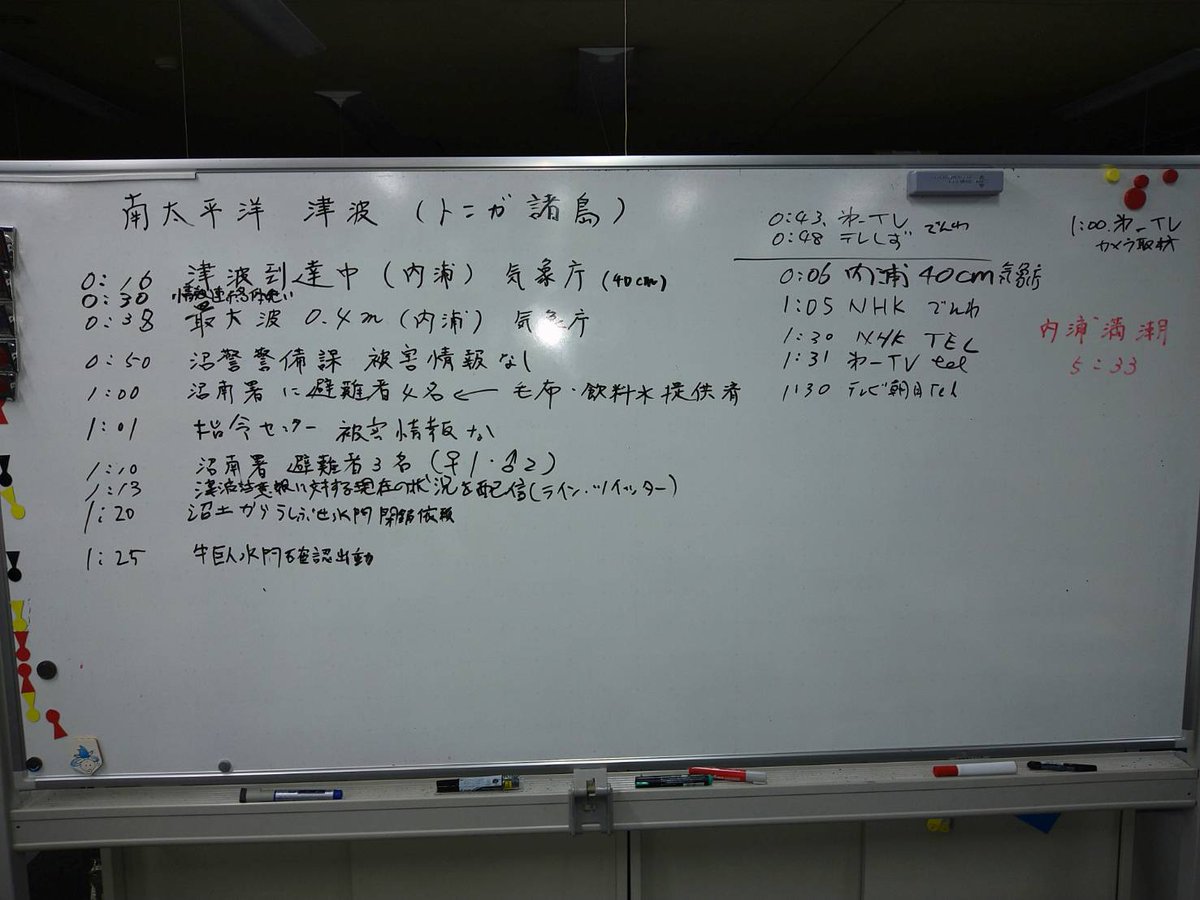 南太平洋 津波 (トンガ諸島)
0:16 津波到達中 (内浦) 気象庁 (40cm)
0:30 情報連絡員
0:38 最大波 0.4m (内浦) 気象庁
0:50 沼警警備課 被害情報なし
1:00 沼南署に避難者4名 ← 毛布・飲料水提供済
1:01 指令センター 被害情報なし
1:10 沼南署 避難者3名 (♀1・♂2)
1:13 津波注意報に対する現在の状況を配信(ライン・ツイッター)
1:20 沼土からうしぶせ水門閉鎖依頼
1:25 牛臥水門確認出動
0:43. 第一TV でんわ
0:48 テレしず
0:06 内浦 40cm 気象庁
1:05 NHK でんわ
1:30 NHK TEL
1:31 第一TV tel
1:30 テレビ朝日Tel
1:00. 第一TV
カメラ取材
内浦満潮
5:33